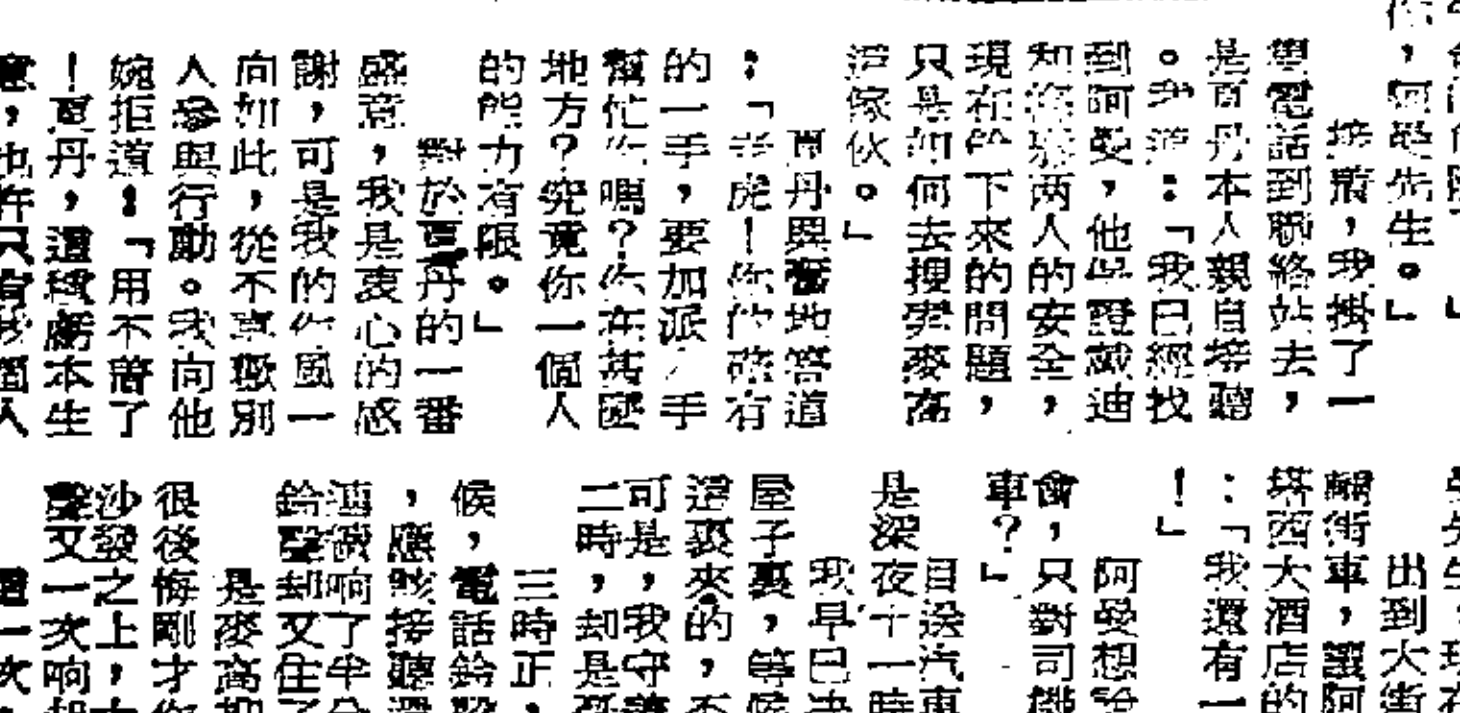 你,阿曼先生。」
接着,我掛了一
個電話到聯絡站去,
是夏丹本人親自接聽
。我道:「我已經找
到阿曼,他保證戴迪
和梅探两人的安全,
現在於下來的問題,
只是如何去搜索麥高
這傢伙。」
夏丹興奮地答道
:「老虎!你的確有
的一手,要加派人手
幫忙你嗎?你在甚麼
地方?究竟你一個人
的能力有限。」
對於夏丹的一番
盛意,我是衷心的感
謝,可是我的作風一
向如此,從不喜歡別
人參與行動。我向他
婉拒道:「用不着了
!夏丹,這種虧本生
意,也許只有我個人
出到大街
截街車,讓阿
塔西大酒店的
:「我還有一
!」
阿曼想
會,只對司機
車?」
目送汽車
是深夜十一時
我早已决
屋子裏,等候
這裏來的,不
可是,我守
二時,却是
三時正,
候,電話鈴
,應該接聽還
連續响了半分
鈴聲却又住了
是麥高
很後悔剛才
沙發之上,
聲又一次响
這一次